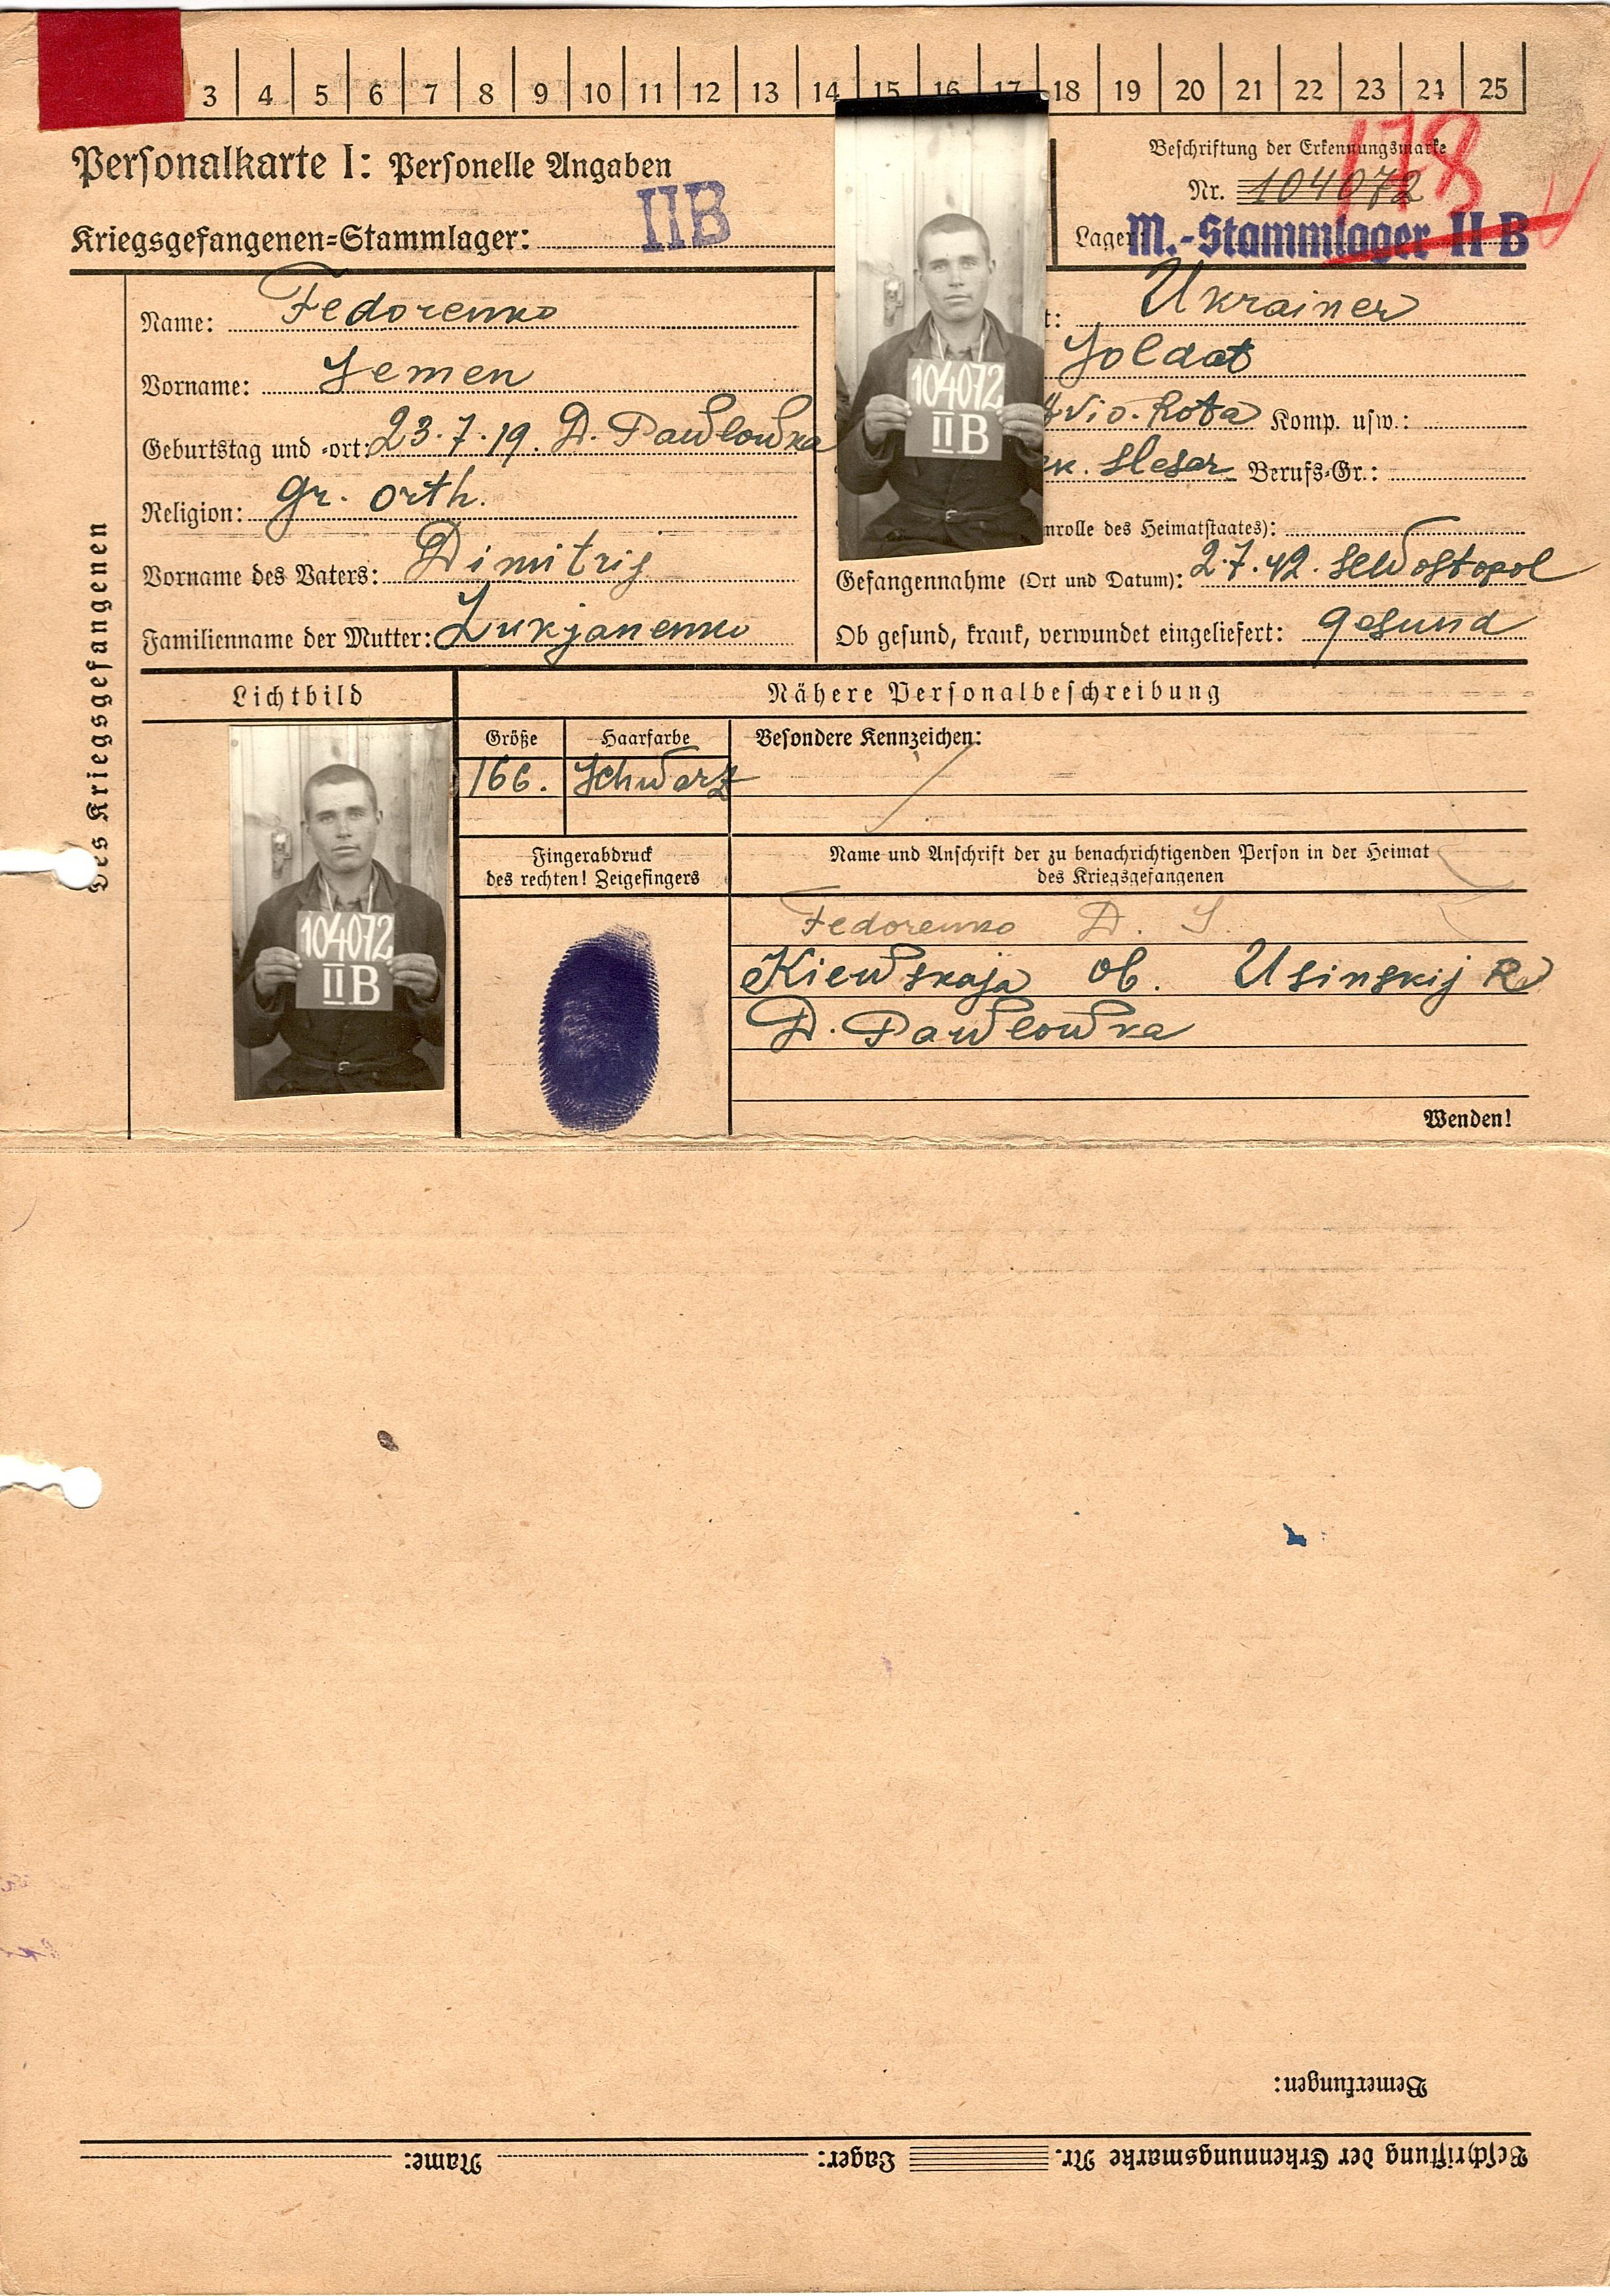 3 4 5 6 7 8 9 10 11 12 13 14 15 16 17 18 19 20 21 22 23 24 25
Personalkarte I: Personelle Angaben
Beschriftung der Erkennungsmarke
178
Nr. 104072
Kriegsgefangenen-Stammlager: IIB
Lager: M.-Stammlager II B
des Kriegsgefangenen
Name: Fedorenko
Ukrainer
Vorname: Semen
Soldat
Geburtstag und -ort: 23.7.19. D. Pawlowka
Rota Komp. usw.:
Religion: gr. orth.
Berufs-Gr.:
nrolle des Heimatstaates):
Vorname des Vaters: Dimitrij
Gefangennahme (Ort und Datum): 2.7.42. Sewostopol
Familienname der Mutter: Lukjanenko
Ob gesund, krank, verwundet eingeliefert: gesund
104072
II B
Lichtbild
Nähere Personalbeschreibung
Größe Haarfarbe Besondere Kennzeichen:
166. Schwarz
104072
II B
Fingerabdruck
des rechten! Zeigefingers
Name und Anschrift der zu benachrichtigenden Person in der Heimat
des Kriegsgefangenen
Fedorenko D. S.
Kiewskaja ob. Usinskij R
D. Pawlowka
Wenden!
Bemerkungen:
Beschriftung der Erkennungsmarke Nr. Lager: Name: